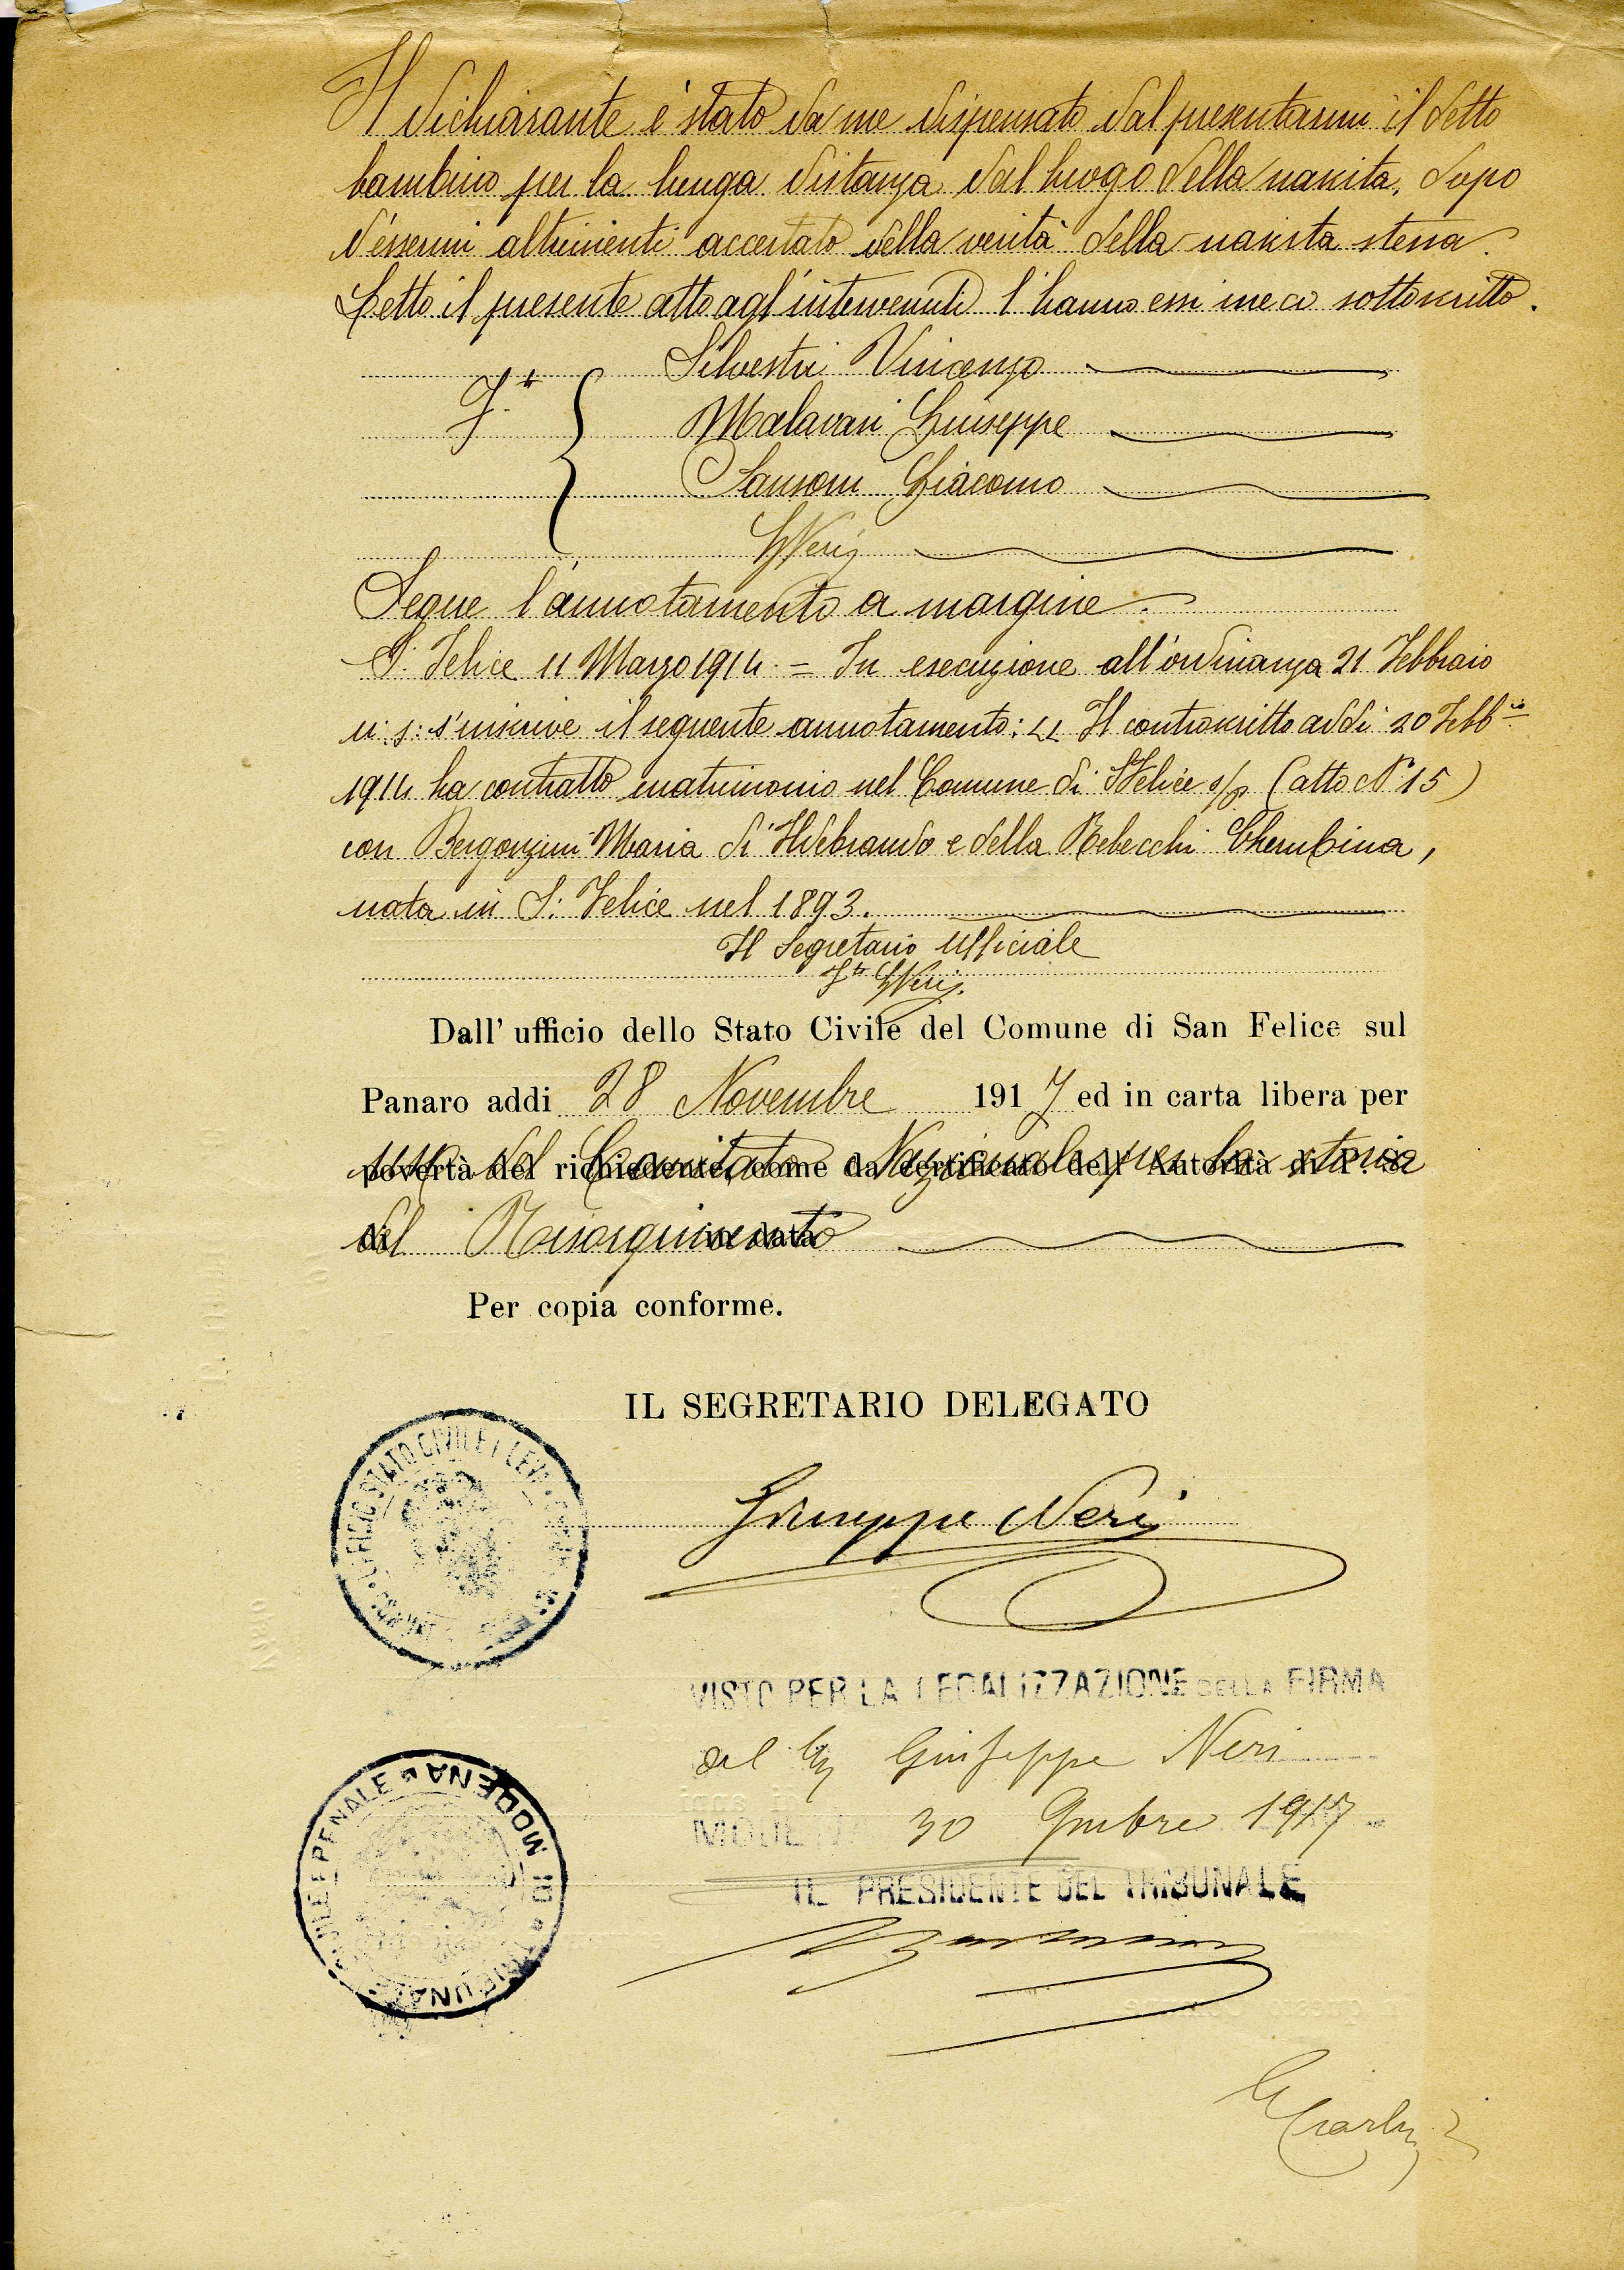 Il dichiarante è stato da me dispensato dal presentarmi il detto
bambino per la lunga distanza dal luogo della nascita, dopo
d'essermi altrimenti accertato della verità della nascita stessa.
Letto il presente atto agl'intervenuti l'hanno essi meco sottoscritto.
Silvestri Vincenzo
F.to Malavasi Giuseppe
Sansoni Giacomo
G Neri
Segue l'annotamento a margine.
S. Felice 11 Marzo 1914. = In esecuzione all'ordinanza 21 Febbraio
u. s: s'inscrive il seguente annotamento: « Il controscritto addì 20 Febb.io
1914 ha contratto matrimonio nel Comune di S Felice s/p (atto N° 15)
con Bergonzini Maria di Ildebrando e della Rebecchi Cherubina,
nata in S. Felice nel 1893.
Il Segretario Ufficiale
F.to G Neri.
Dall' ufficio dello Stato Civile del Comune di San Felice sul
Panaro addi 28 Novembre 1917 ed in carta libera per
povertà del richiedente, come da certificato dell' Autorità di P. S.
uso del Comitato Nazionale per la storia
di in data
del Risorgimento
Per copia conforme.
IL SEGRETARIO DELEGATO
UFFICIO STATO CIVILE E LEVA
Giuseppe Neri
VISTO PER LA LEGALIZZAZIONE DELLA FIRMA
del Sig Giuseppe Neri
MODENA 30 9mbre 1917
TRIBUNALE CIVILE E PENALE DI MODENA
IL PRESIDENTE DEL TRIBUNALE